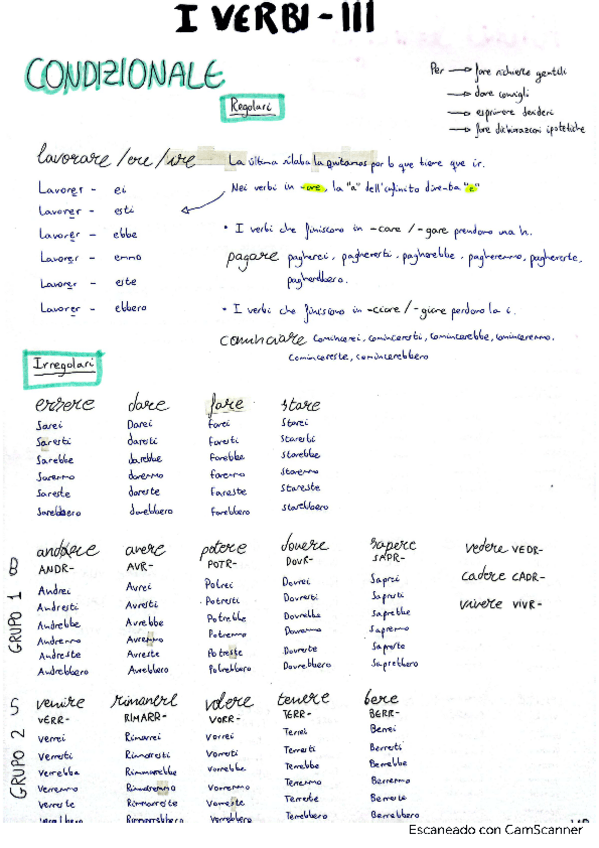 I VERBI - III
CONDIZIONALE
Per → fare richieste gentili
→ dare consigli
→ esprimere desideri
→ fare dichiarazioni ipotetiche
Regolari
lavorare /ere /ire
La última sílaba la quitamos por lo que tiene que ir.
Nei verbi in -are, la "a" dell'infinito diventa "e"
Lavorer - ei
Lavorer - esti
Lavorer - ebbe
Lavorer - emmo
Lavorer - este
Lavorer - ebbero
• I verbi che finiscono in -care / -gare prendono una h.
pagare pagherei, pagheresti, pagherebbe, pagheremmo, paghereste,
pagherebbero.
• I verbi che finiscono in -ciare / -giare perdono la i.
cominciare comincerei, cominceresti, comincerebbe, cominceremmo.
Comincereste, comincerebbero
Irregolari
essere dare fare stare
Sarei Darei Farei Starei
Saresti daresti Faresti Staresti
Sarebbe darebbe Farebbe Starebbe
Saremmo daremmo faremmo Staremmo
Sareste dareste Fareste Stareste
Sarebbero darebbero farebbero starebbero
GRUPO 1 8
andare avere potere dovere sapere vedere VEDR-
ANDR- AVR- POTR- DOVR- SAPR- cadere CADR-
Andrei Avrei Potrei Dovrei Saprei vivere VIVR-
Andresti Avresti Potresti Dovresti Sapresti
Andrebbe Avrebbe Potrebbe Dovrebbe Saprebbe
Andremmo Avremmo Potremmo Dovremmo Sapremmo
Andreste Avreste Potreste Dovreste Sapreste
Andrebbero Avrebbero Potrebbero Dovrebbero Saprebbero
GRUPO 2 5
venire rimanere volere tenere bere
VERR- RIMARR- VORR- TERR- BERR-
Verrei Rimarrei Vorrei Terrei Berrei
Verresti Rimarresti Vorresti Terresti Berresti
Verrebbe Rimarrebbe Vorrebbe Terrebbe Berrebbe
Verremmo Rimarremmo Vorremmo Terremmo Berremmo
Verreste Rimarreste Vorreste Terreste Berreste
Verrebbero Rimarrebbero Vorrebbero Terrebbero Berrebbero
Escaneado con CamScanner